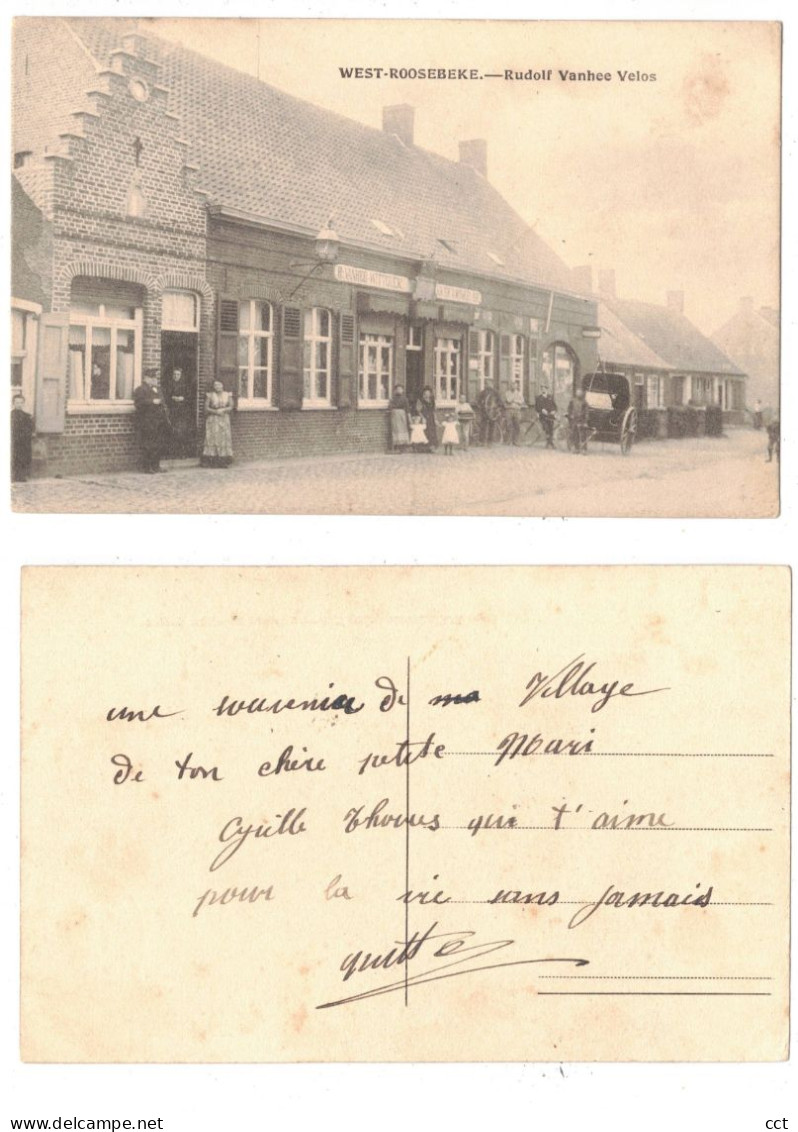 WEST-ROOSEBEKE.—Rudolf Vanhee Velos
une souvenir de ma Village
de ton chère petite Mari
Cyrille Thorus qui t'aime
pour la vie sans jamais
quitte
Delcampe.net
cct